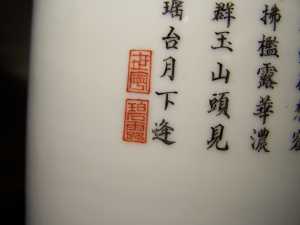 拂檻露華濃
群玉山頭見
瑤台月下逢